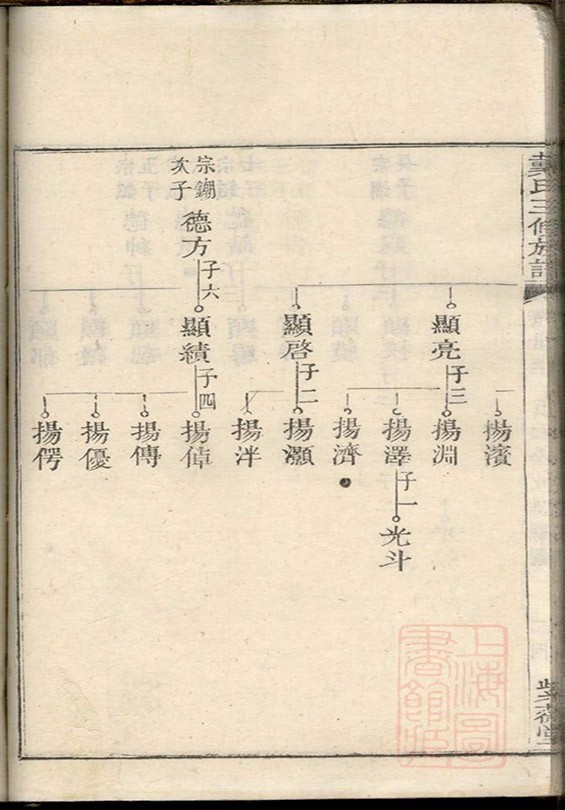 戴氏三修族譜
宗鎙
次子
德方
子六
顯亮
子三
顯啓
子二
顯績
子四
揚濱
揚淵
揚澤
子一
揚濟
揚灝
揚泮
揚倬
揚傳
揚優
揚愕
光斗
上海圖
書館藏